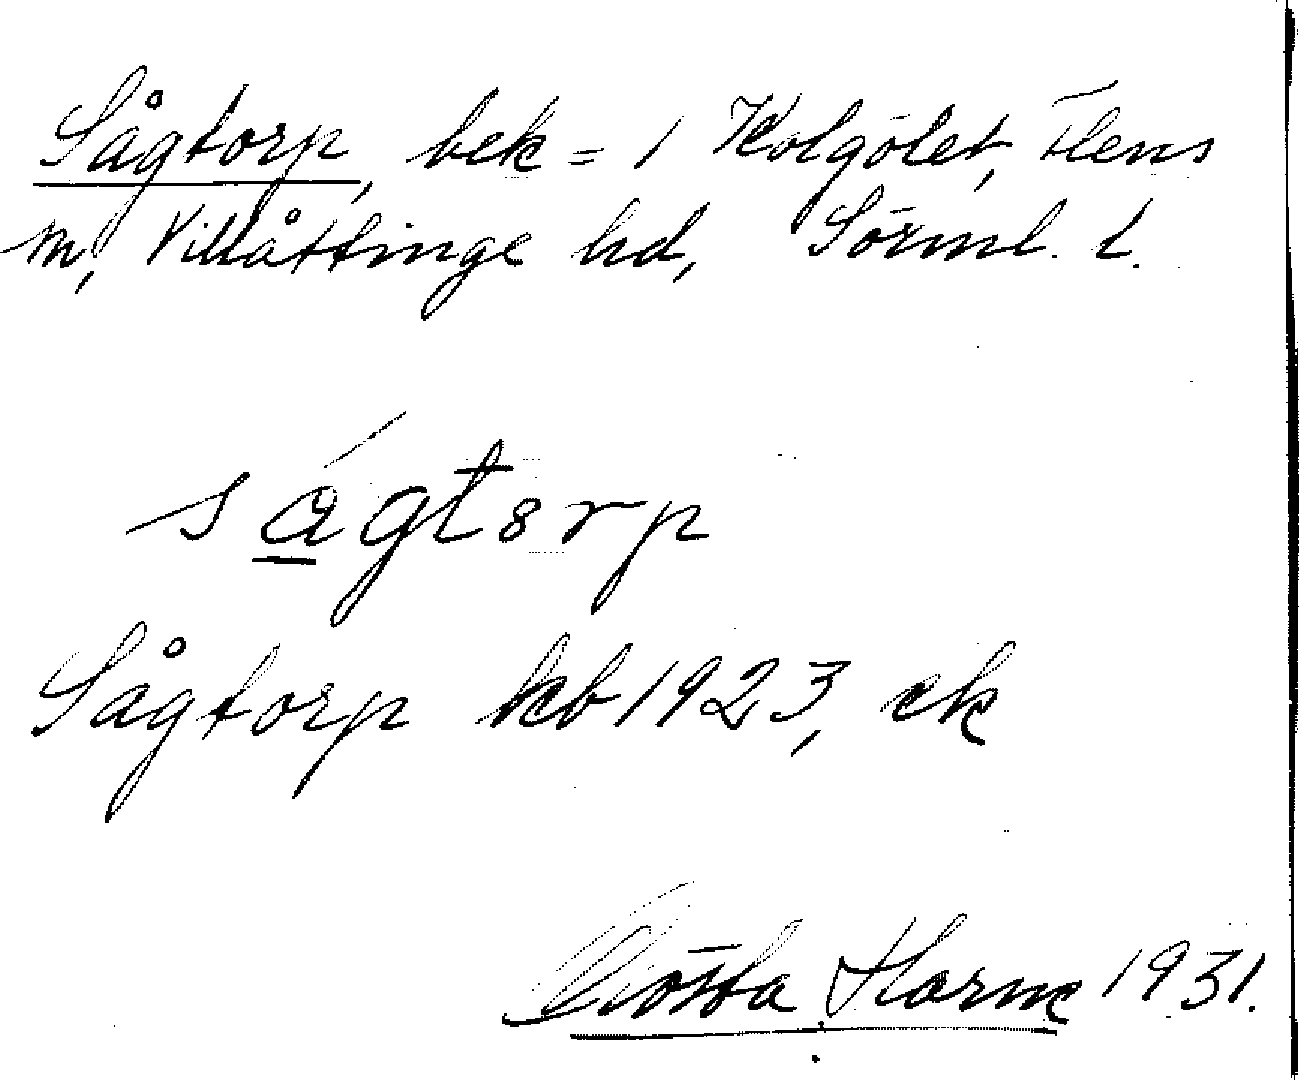 Sågtorp, bek = 1 Kolgölet, Flens
sn, Villåttinge hd, Sörml. l.
ságtorp
Sågtorp kb 1923, ek
Gösta Horne 1931.